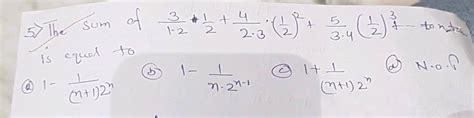 5> The sum of 3/1·2 · 1/2 + 4/2·3 · (1/2)² + 5/3·4 (1/2)³ --- to n terms
is equal to
(a) 1 - 1/(n+1)2ⁿ (b) 1 - 1/n·2ⁿ⁻¹ (c) 1 + 1/(n+1)2ⁿ (d) N.o.T